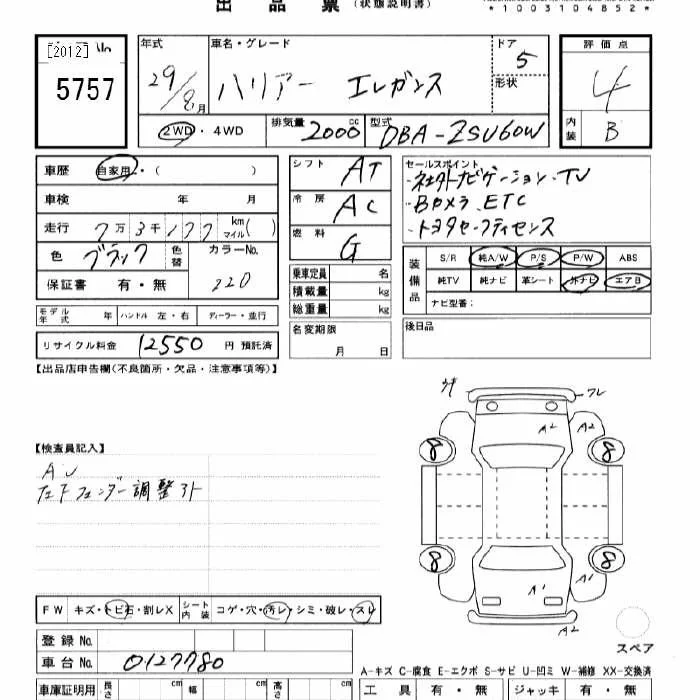 出品票(状態説明書)
*1003104852*
[2012] No.
5757
年式 29/8月
車名・グレード ハリアー エレガンス
ドア 5
形状
評価点 4
内装 B
2WD・4WD
排気量 2000 cc
型式 DBA-ZSU60W
車歴 自家用・( )
車検 年 月
走行 7万3千177 km マイル( )
色 ブラック 色替 カラーNo. 220
保証書 有・無
モデル年式 年 ハンドル 左・右 ディーラー・並行
リサイクル料金 12550 円 預託済
シフト AT
冷房 AC
燃料 G
乗車定員 名
積載量 kg
総重量 kg
名変期限 月 日
セールスポイント
・社外ナビゲーション・TV
・Bカメラ、ETC
・トヨタセーフティセンス
装備品
S/R 純A/W P/S P/W ABS
純TV 純ナビ 革シート 外ナビ エアB
ナビ型番:
後日品
【出品店申告欄(不良箇所・欠品・注意事項等)】
【検査員記入】
調整外
A2 A2
8 8
8 8
A1 A1
A2
スペア
FW キズ・トビ石・割レX シート内装 コゲ・穴・汚レ・シミ・破レ・スレ
登録No.
車台No. 0127780
A-キズ C-腐食 E-エクボ S-サビ U-凹ミ W-補修 XX-交換済
車庫証明用 長さ cm 幅 cm 高さ cm
工具 有・無 ジャッキ 有・無